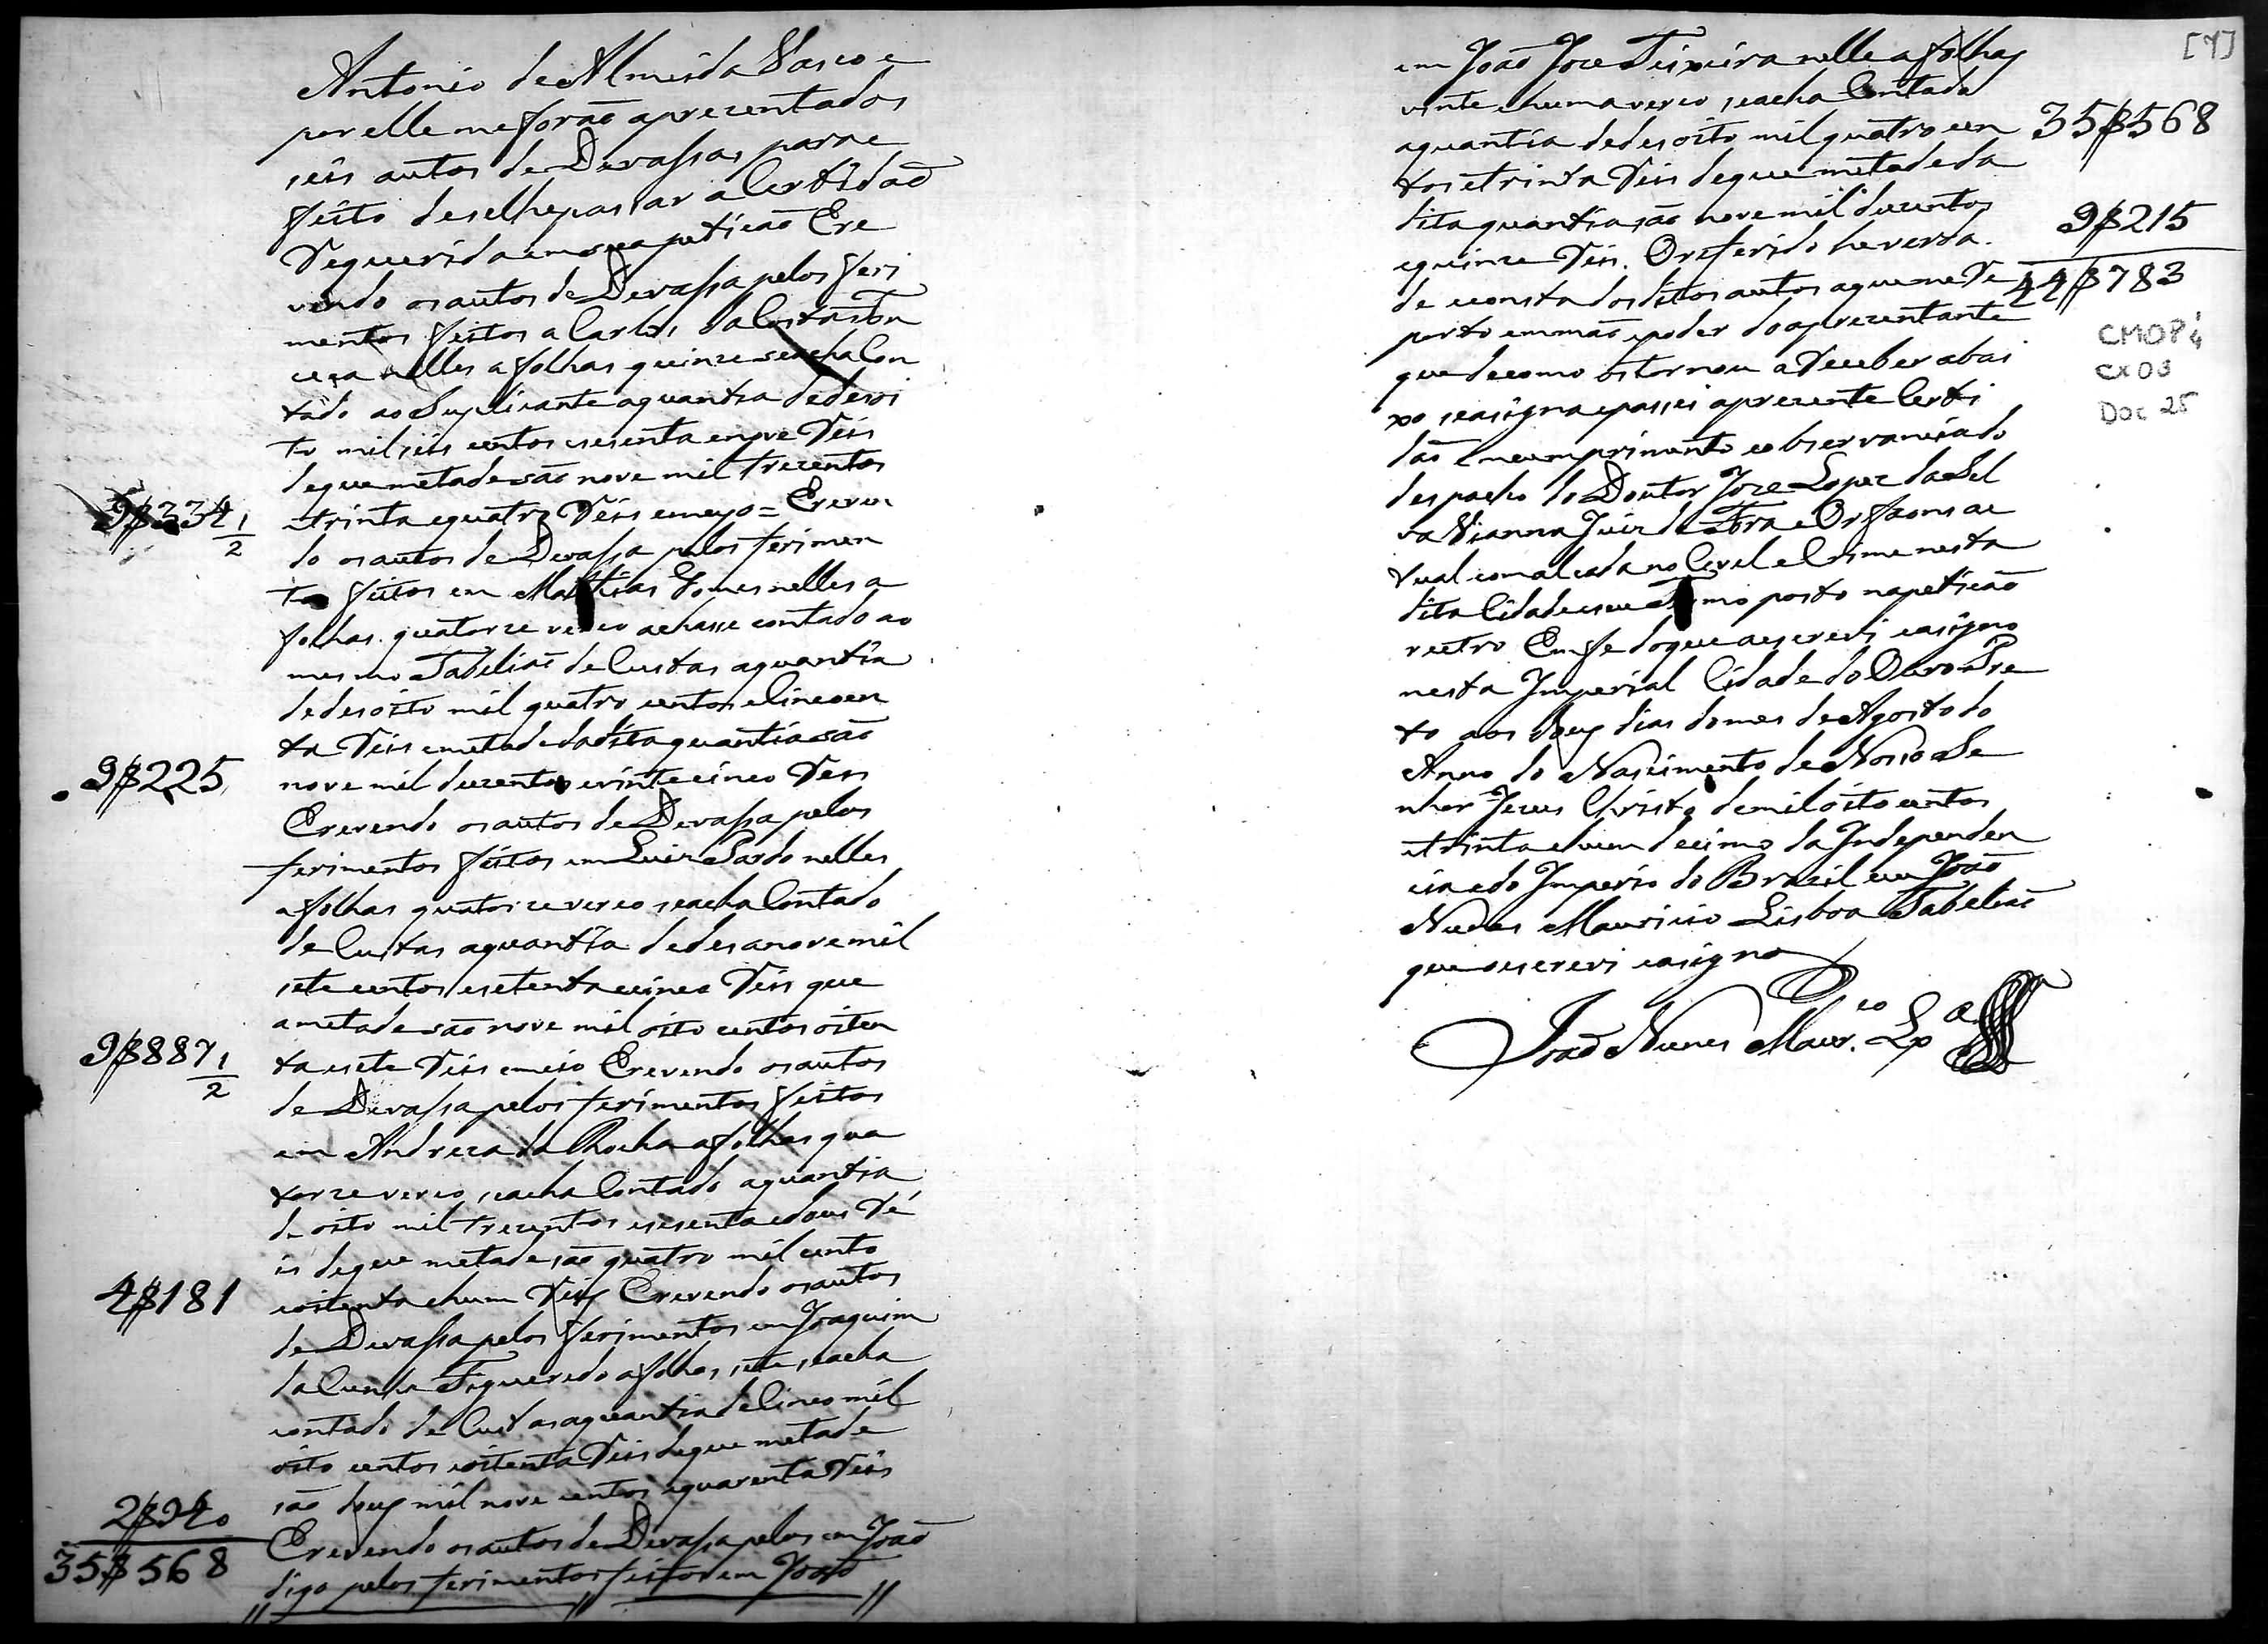 Antonio de Almeida Vasco e
por elle me forão aprezentados
seis autos de Devassas para e
feito de se lhe passar a Certidão
Requerida em sua petição E re
vendo os autos de Devassa pelos feri
mentos feitos a Carlos da Costa
nelles a folhas quinze se acha Con
tado ao Suplicante a quantia de desoi
to mil seis centos e sesenta e nove Reis
de que metade são nove mil trezentos
9$334 1/2
e trinta e quatro Reis e meyo = E reven
do os autos de Devassa pelos ferimen
tos feitos em Mathias Gomes nelles a
folhas quatorze verço achasse contado ao
mesmo Tabelião de Custas a quantia
de desoito mil quatro centos e Cincoen
ta Reis e metade da dita quantia são
9$225
nove mil duzentos e vinte cinco Reis
E revendo os autos de Devassa pelos
ferimentos feitos em Luiz Pardo nelles
a folhas quatorze verço se acha Contado
de Custas a quantia de desanove mil
sete centos e setenta e cinco Reis que
a metade são nove mil oito centos oiten
9$887 1/2
ta e sete Reis e meio E revendo os autos
de Devassa pelos ferimentos feitos
em Andreza da Rocha a folhas qua
torze verço se acha Contado a quantia
de oito mil trezentos e sesenta e dous Ré
is de que metade são quatro mil cento
4$181
e oitenta e hum Reis E revendo os autos
de Devassa pelos ferimentos em Joaquim
da Cunha Figueredo a folhas sete se acha
contado de Custas a quantia de Cinco mil
oito centos e oitenta Reis de que metade
são dous mil nove centos e quarenta Reis
2$940
E revendo os autos de Devassa pelos em João
35$568
digo pelos ferimentos feitos em João
[7]
em João Joze Teixeira nelle a folhas
vinte e huma verço se acha Contado
a quantia de desoito mil quatro cen
35$568
tos e trinta Reis de que metade da
dita quantia são nove mil duzentos
9$215
e quinze Reis. O referido he verda
de e consta dos ditos autos a que me Re
44$783
porto em mão e poder do aprezentante
que de como os tornou a Receber abai
xo se asigna e passei a prezente Certi
dão em cumprimento e observancia do
despacho do Doutor Joze Lopez da Sil
va Vianna Juiz de Fora e Orfaons ac
tual com alçada no Civel e Crime nesta
dita Cidade e seu Termo posto na petição
retro Em fe do que a escrevi e asigno
nesta Imperial Cidade do Ouro Pre
to aos dous dias do mes de Agosto do
Anno do Nascimento de Nosso Se
nhor Jezus Christo de mil oito centos
e trinta e hum decimo da Independen
cia e do Imperio do Brazil eu João
Nunes Mauricio Lisboa Tabelião
que o escrevi e asigno
João Nunes Maur.co Lx.a
CMOP
CX 03
Doc 25